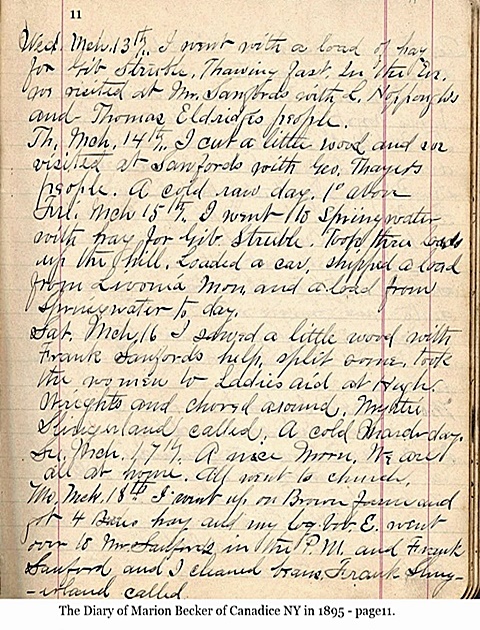 11
Wed. Mch. 13th. I went with a load of hay
for Gib Struble. Thawing fast. In the Eve.
we visited at Mr. Sanfords with L.
and Thomas Eldridges people.
Th. Mch. 14th. I cut a little wood and we
visited at Sanfords with Geo. Thayers
people. A cold raw day. 1° above
Fri. Mch 15th. I went to Springwater
with hay for Gib. Struble. Took three loads
up the hill. Loaded a car, shipped a load
from Livonia Mon. and a load from
Springwater to day.
Sat. Mch. 16 I sawed a little wood with
Frank Sanfords help, split some, took
the women to Ladies aid at Hugh
Wrights and chored around. Myrtie
Slingerland called. A cold day.
Su. Mch. 17th. A nice Morn. We are
all at home. All went to church.
Mo. Mch. 18th I went up on Brown Farm and
got 4 hay and my E. went
over to Mr Sanfords in the P.M. and Frank
Sanford and I cleaned beans. Frank Sling-
-erland called.
The Diary of Marion Becker of Canadice NY in 1895 - page11.